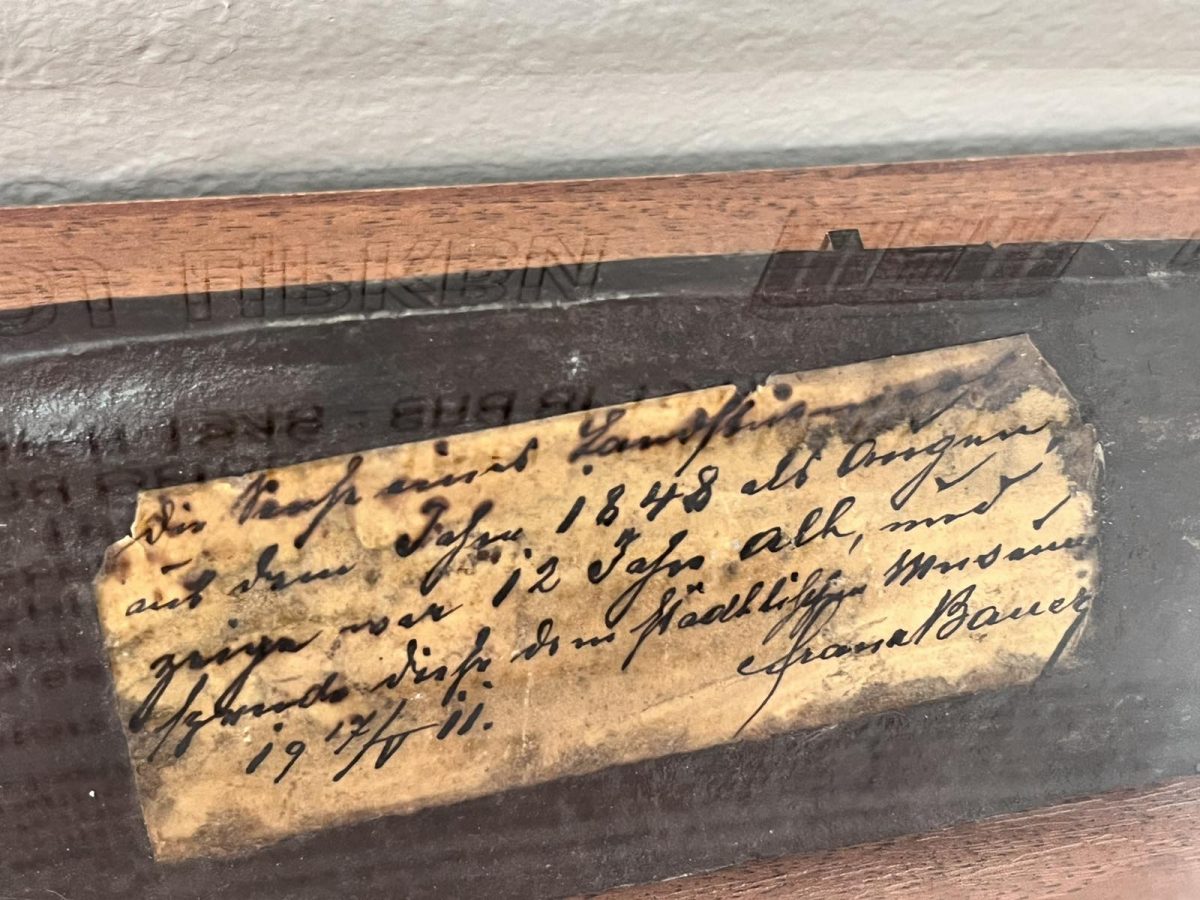 Die Sense eines
aus dem Jahre 1848 als Augen,
zeige war 12 Jahr Alt, und
spende diese dem städtischen Museum
Franz Bauer
19 17/V 11.